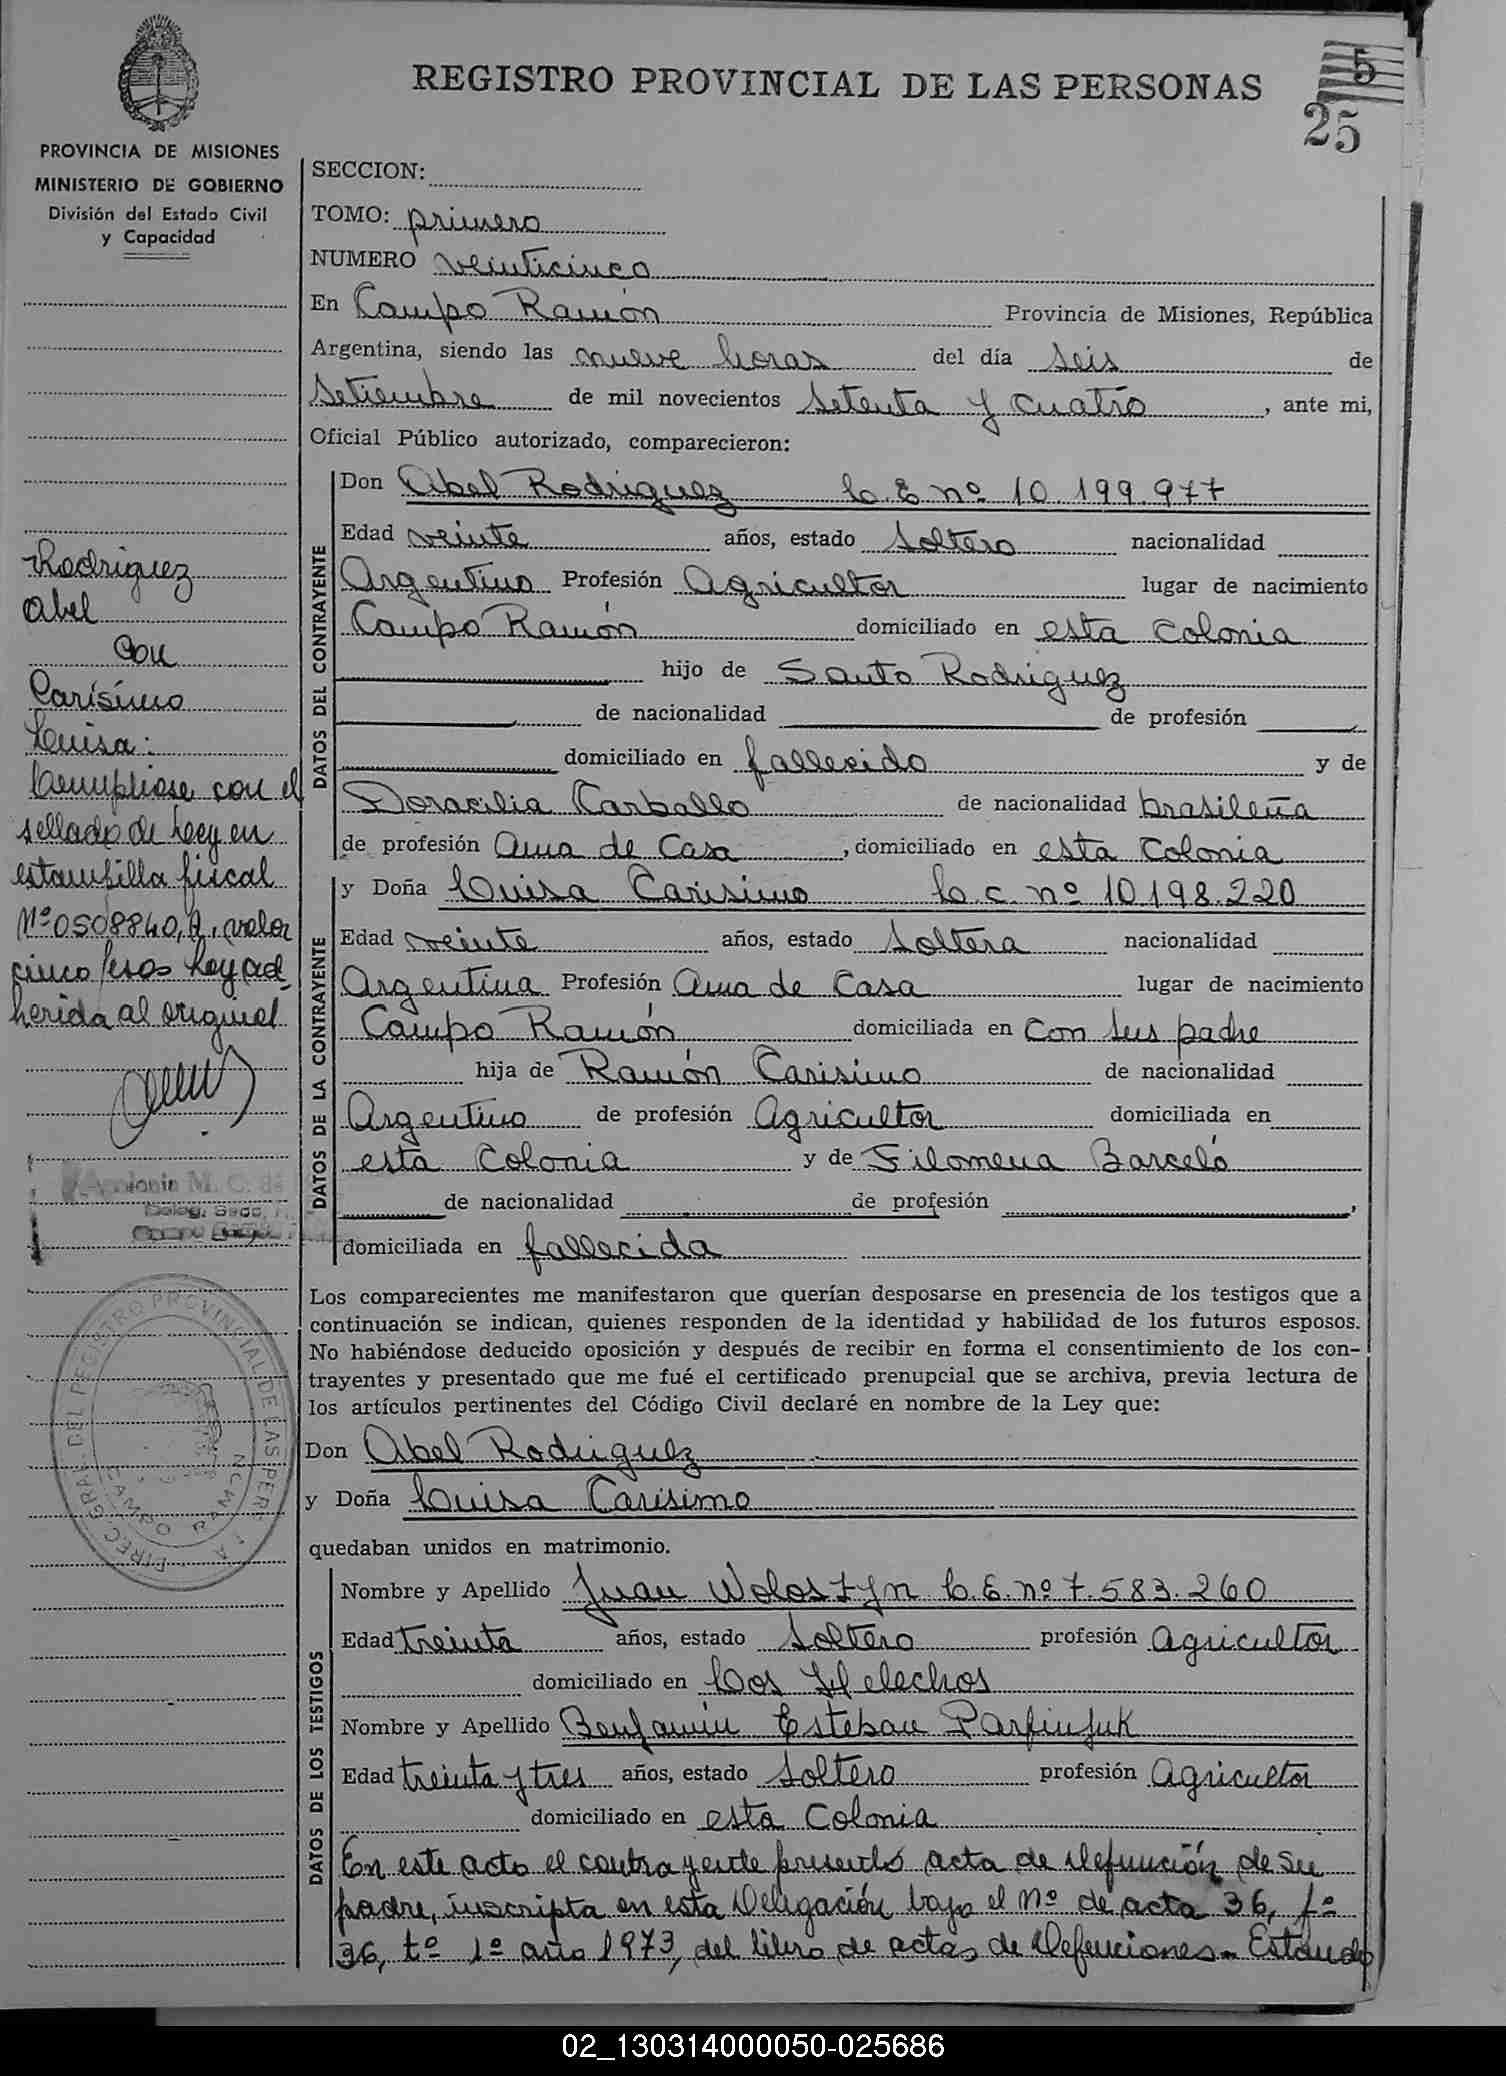 REGISTRO PROVINCIAL DE LAS PERSONAS
5
25
PROVINCIA DE MISIONES
MINISTERIO DE GOBIERNO
División del Estado Civil
y Capacidad
SECCION:
TOMO: primero
NUMERO veinticinco
En Campo Ramón Provincia de Misiones, República
Argentina, siendo las nueve horas del día seis de
setiembre de mil novecientos setenta y cuatro, ante mi,
Oficial Público autorizado, comparecieron:
DATOS DEL CONTRAYENTE
Don Abel Rodriguez L.E nº 10.199.977
Edad veinte años, estado Soltero nacionalidad
Argentino Profesión Agricultor lugar de nacimiento
Campo Ramón domiciliado en esta Colonia
hijo de Santo Rodriguez
de nacionalidad de profesión
domiciliado en fallecido y de
Doracilia Carballo de nacionalidad brasileña
de profesión Ama de Casa, domiciliado en esta Colonia
DATOS DE LA CONTRAYENTE
y Doña Luisa Carisimo L.C. nº 10.198.220
Edad veinte años, estado Soltera nacionalidad
Argentina Profesión Ama de Casa lugar de nacimiento
Campo Ramón domiciliada en Con sus padre
hija de Ramón Carisimo de nacionalidad
Argentino de profesión Agricultor domiciliada en
esta Colonia y de Filomena Barceló
de nacionalidad de profesión ,
domiciliada en fallecida
Los comparecientes me manifestaron que querían desposarse en presencia de los testigos que a
continuación se indican, quienes responden de la identidad y habilidad de los futuros esposos.
No habiéndose deducido oposición y después de recibir en forma el consentimiento de los con-
trayentes y presentado que me fué el certificado prenupcial que se archiva, previa lectura de
los artículos pertinentes del Código Civil declaré en nombre de la Ley que:
Don Abel Rodriguez
y Doña Luisa Carisimo
quedaban unidos en matrimonio.
DATOS DE LOS TESTIGOS
Nombre y Apellido Juan Wolostyn L.E. nº 7.583.260
Edad treinta años, estado Soltero profesión Agricultor
domiciliado en Los Helechos
Nombre y Apellido Benjamin Esteban Parfinjuk
Edad treinta y tres años, estado Soltero profesión Agricultor
domiciliado en esta Colonia
En este acto el contrayente presentó acta de defunción de su
padre, inscripta en esta Delegación bajo el Nº de acta 36, fº
36, tº 1º año 1973, del libro de actas de Defunciones.- Estando
Rodriguez
Abel
Con
Carísimo
Luisa:
Cumpliose con el
sellado de Ley en
estampilla fiscal
Nº 0508840, A, valor
cinco pesos Ley ad-
herida al original
DIREC. GRAL. DEL REGISTRO PROVINCIAL DE LAS PERS.
CAMPO RAMON
02_130314000050-025686